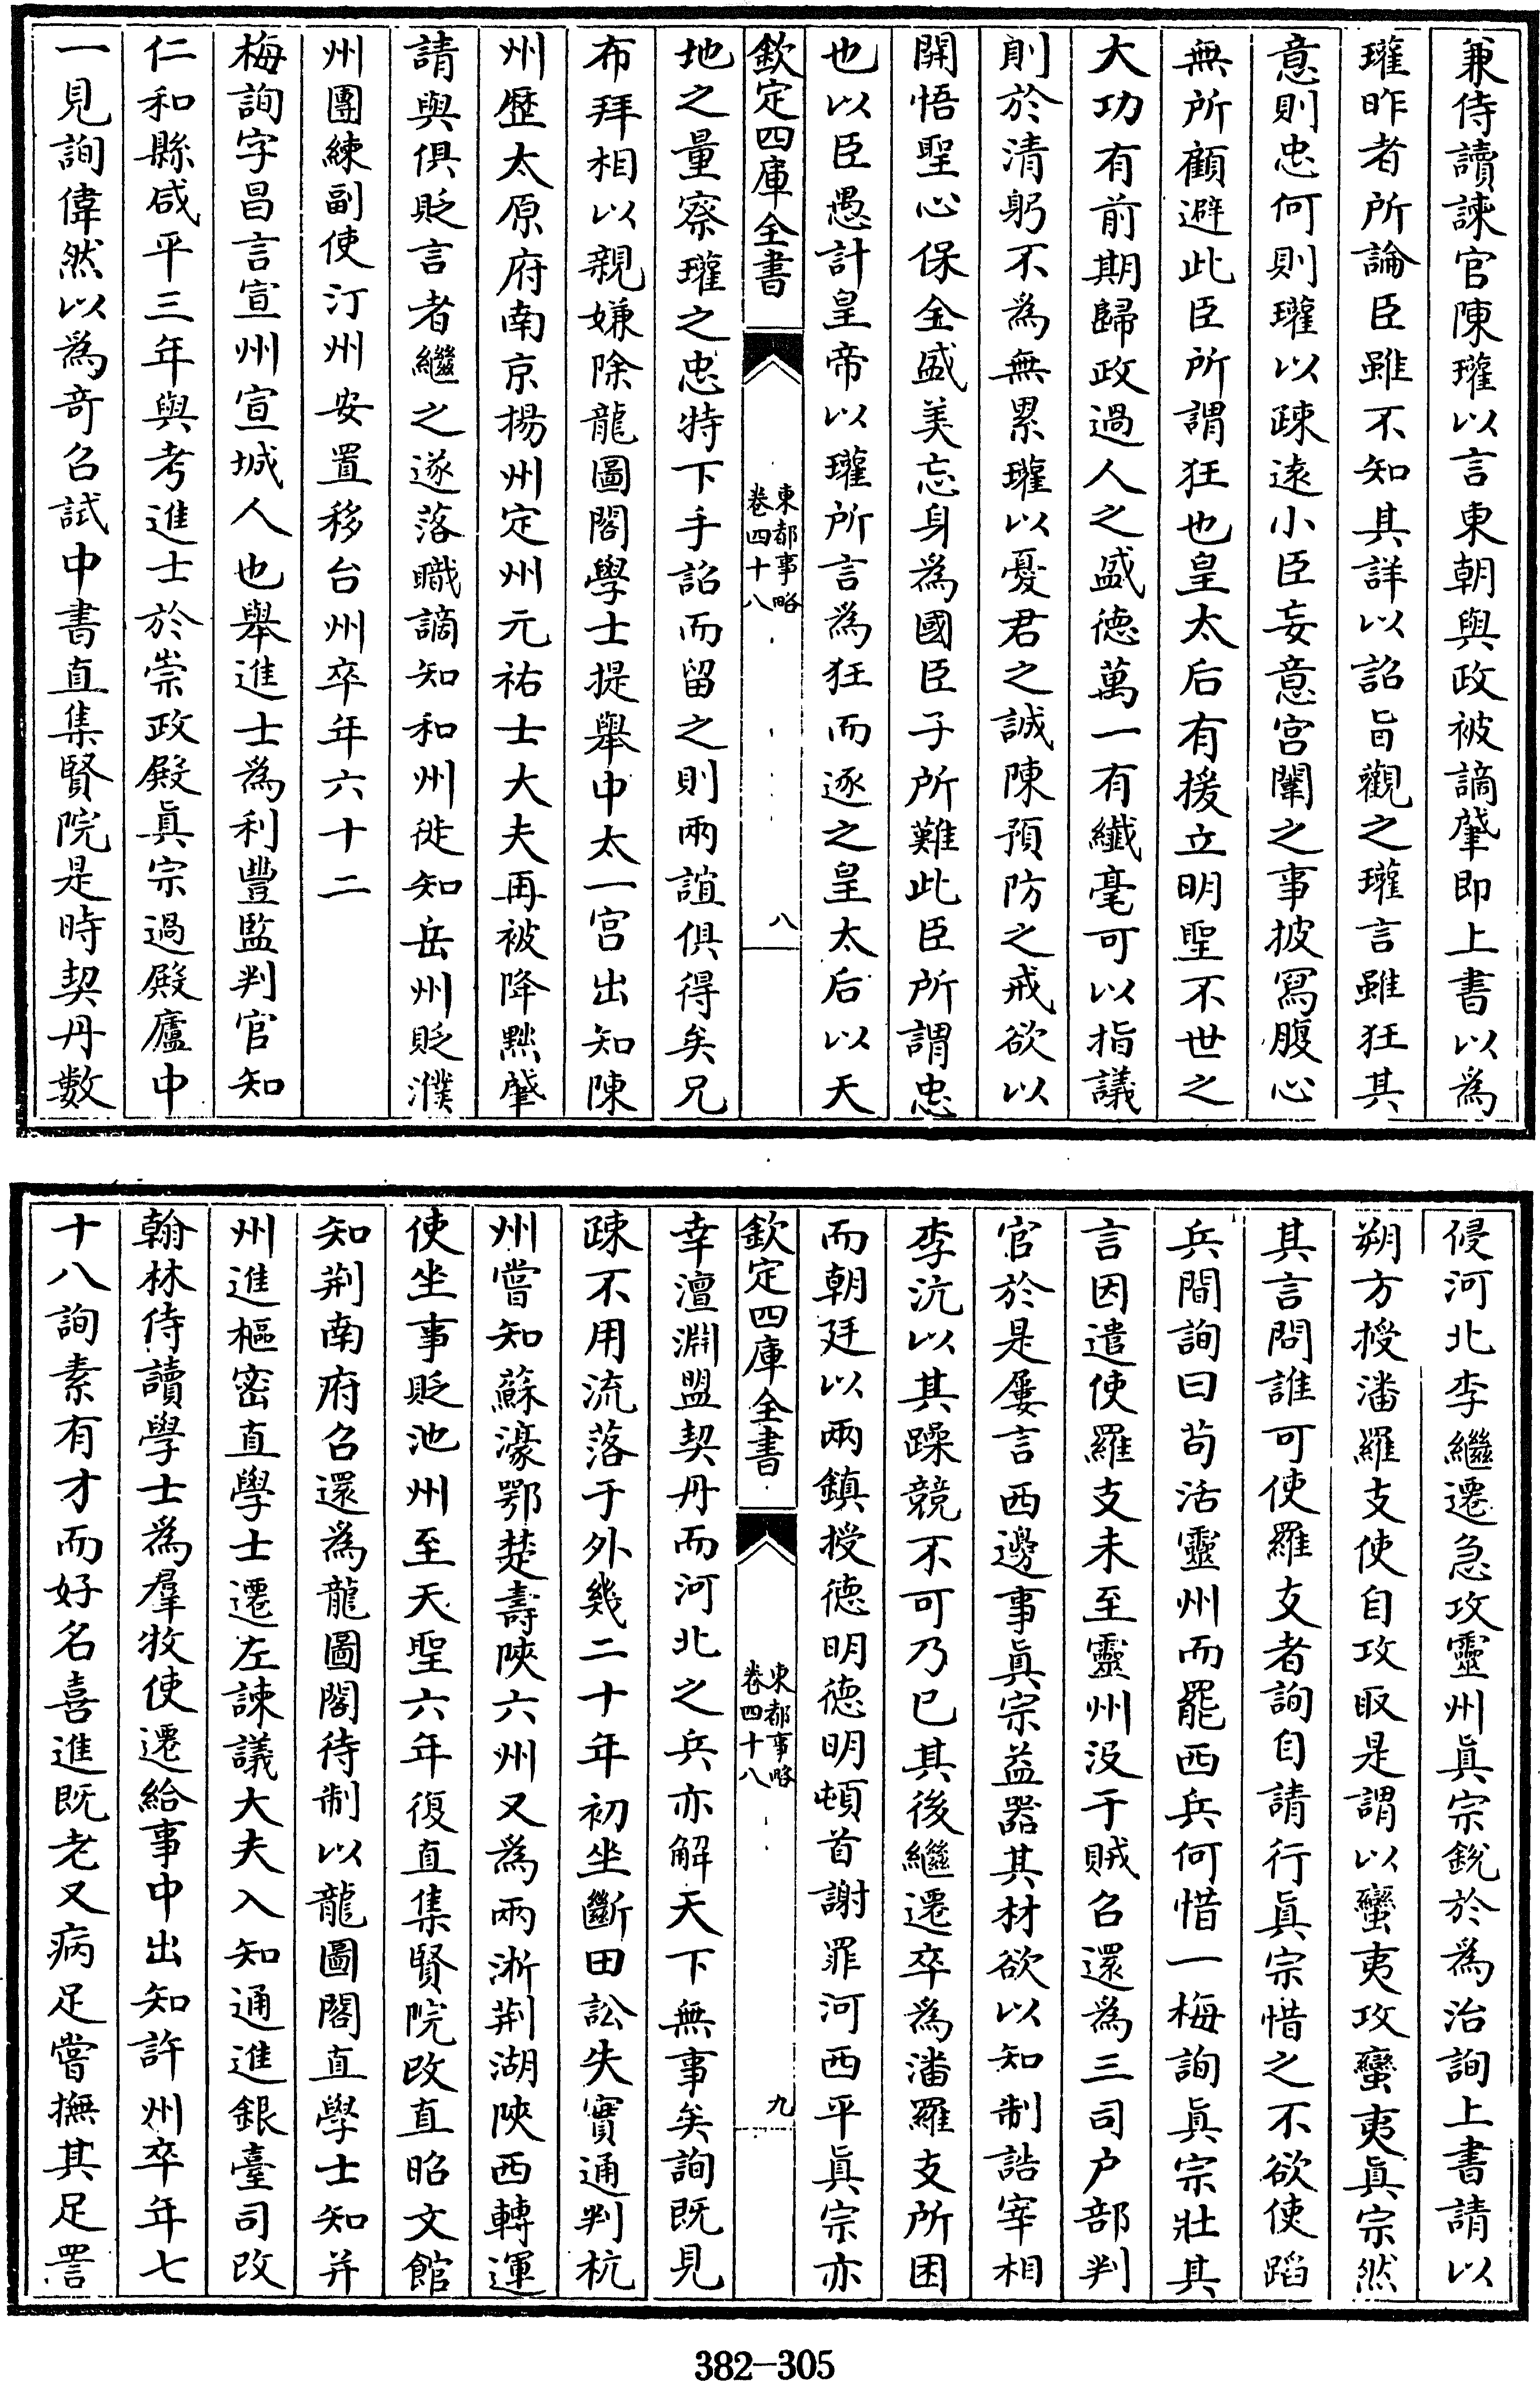 兼侍讀諫官陳瓘以言東朝與政被謫肇即上書以為
瓘昨者所論臣雖不知其詳以詔旨觀之瓘言雖狂其
意則忠何則瓘以疎遠小臣妄意宮闈之事披寫腹心
無所顧避此臣所謂狂也皇太后有援立明聖不世之
大功有前期歸政過人之盛德萬一有纖毫可以指議
則於清躬不為無累瓘以憂君之誠陳預防之戒欲以
開悟聖心保全盛美忘身為國臣子所難此臣所謂忠
也以臣愚計皇帝以瓘所言為狂而逐之皇太后以天
欽定四庫全書
東都事略
卷四十八
八
地之量察瓘之忠特下手詔而留之則兩誼俱得矣兄
布拜相以親嫌除龍圖閣學士提舉中太一宮出知陳
州歷太原府南京揚州定州元祐士大夫再被降黜肇
請與俱貶言者繼之遂落職謫知和州徙知岳州貶濮
州團練副使汀州安置移台州卒年六十二
梅詢字昌言宣州宣城人也舉進士為利豐監判官知
仁和縣咸平三年與考進士於崇政殿真宗過殿廬中
一見詢偉然以為奇召試中書直集賢院是時契丹數
侵河北李繼遷急攻靈州真宗銳於為治詢上書請以
朔方授潘羅支使自攻取是謂以蠻夷攻蠻夷真宗然
其言問誰可使羅支者詢自請行真宗惜之不欲使蹈
兵間詢曰苟活靈州而罷西兵何惜一梅詢真宗壯其
言因遣使羅支未至靈州沒于賊召還為三司户部判
官於是屢言西邊事真宗益器其材欲以知制誥宰相
李沆以其躁競不可乃已其後繼遷卒為潘羅支所困
而朝廷以兩鎮授德明德明頓首謝罪河西平真宗亦
欽定四庫全書
東都事略
卷四十八
九
幸澶淵盟契丹而河北之兵亦解天下無事矣詢既見
疎不用流落于外幾二十年初坐斷田訟失實通判杭
州嘗知蘇濠鄂楚壽陝六州又為兩浙荆湖陝西轉運
使坐事貶池州至天聖六年復直集賢院改直昭文館
知荆南府召還為龍圖閣待制以龍圖閣直學士知并
州進樞密直學士遷左諫議大夫入知通進銀臺司改
翰林侍讀學士為羣牧使遷給事中出知許州卒年七
十八詢素有才而好名喜進既老又病足嘗撫其足詈
382-305